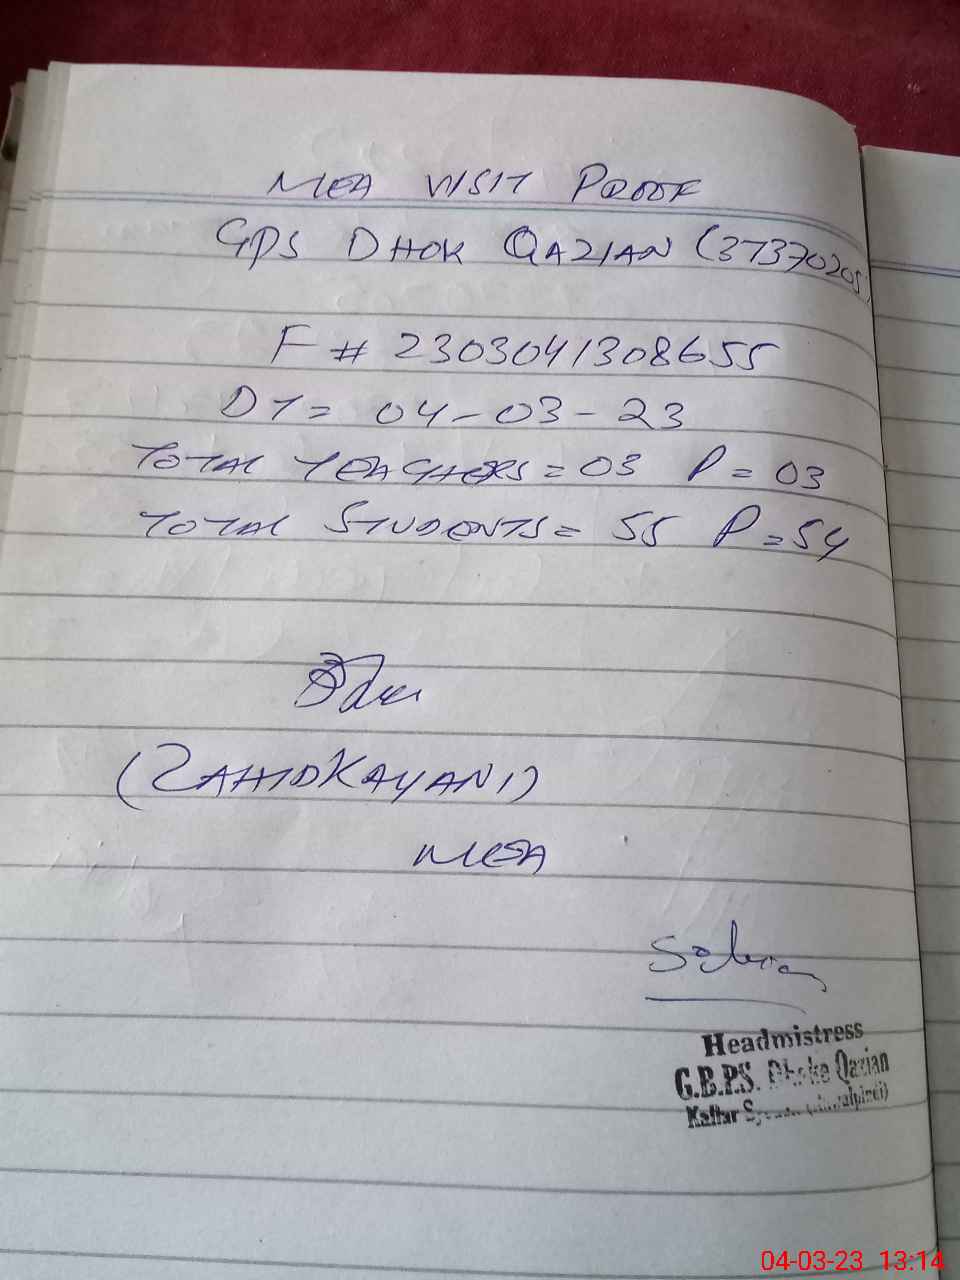 MEA VISIT PROOF
GPS DHOK QAZIAN (37370205)
F # 2303041308655
DT= 04-03-23
TOTAL TEACHERS = 03 P = 03
TOTAL STUDENTS = 55 P = 54
(ZAHIDKAYANI)
MEA
Headmistress
G.B.P.S. Dhoke Qazian
Kallar
04-03-23 13:14